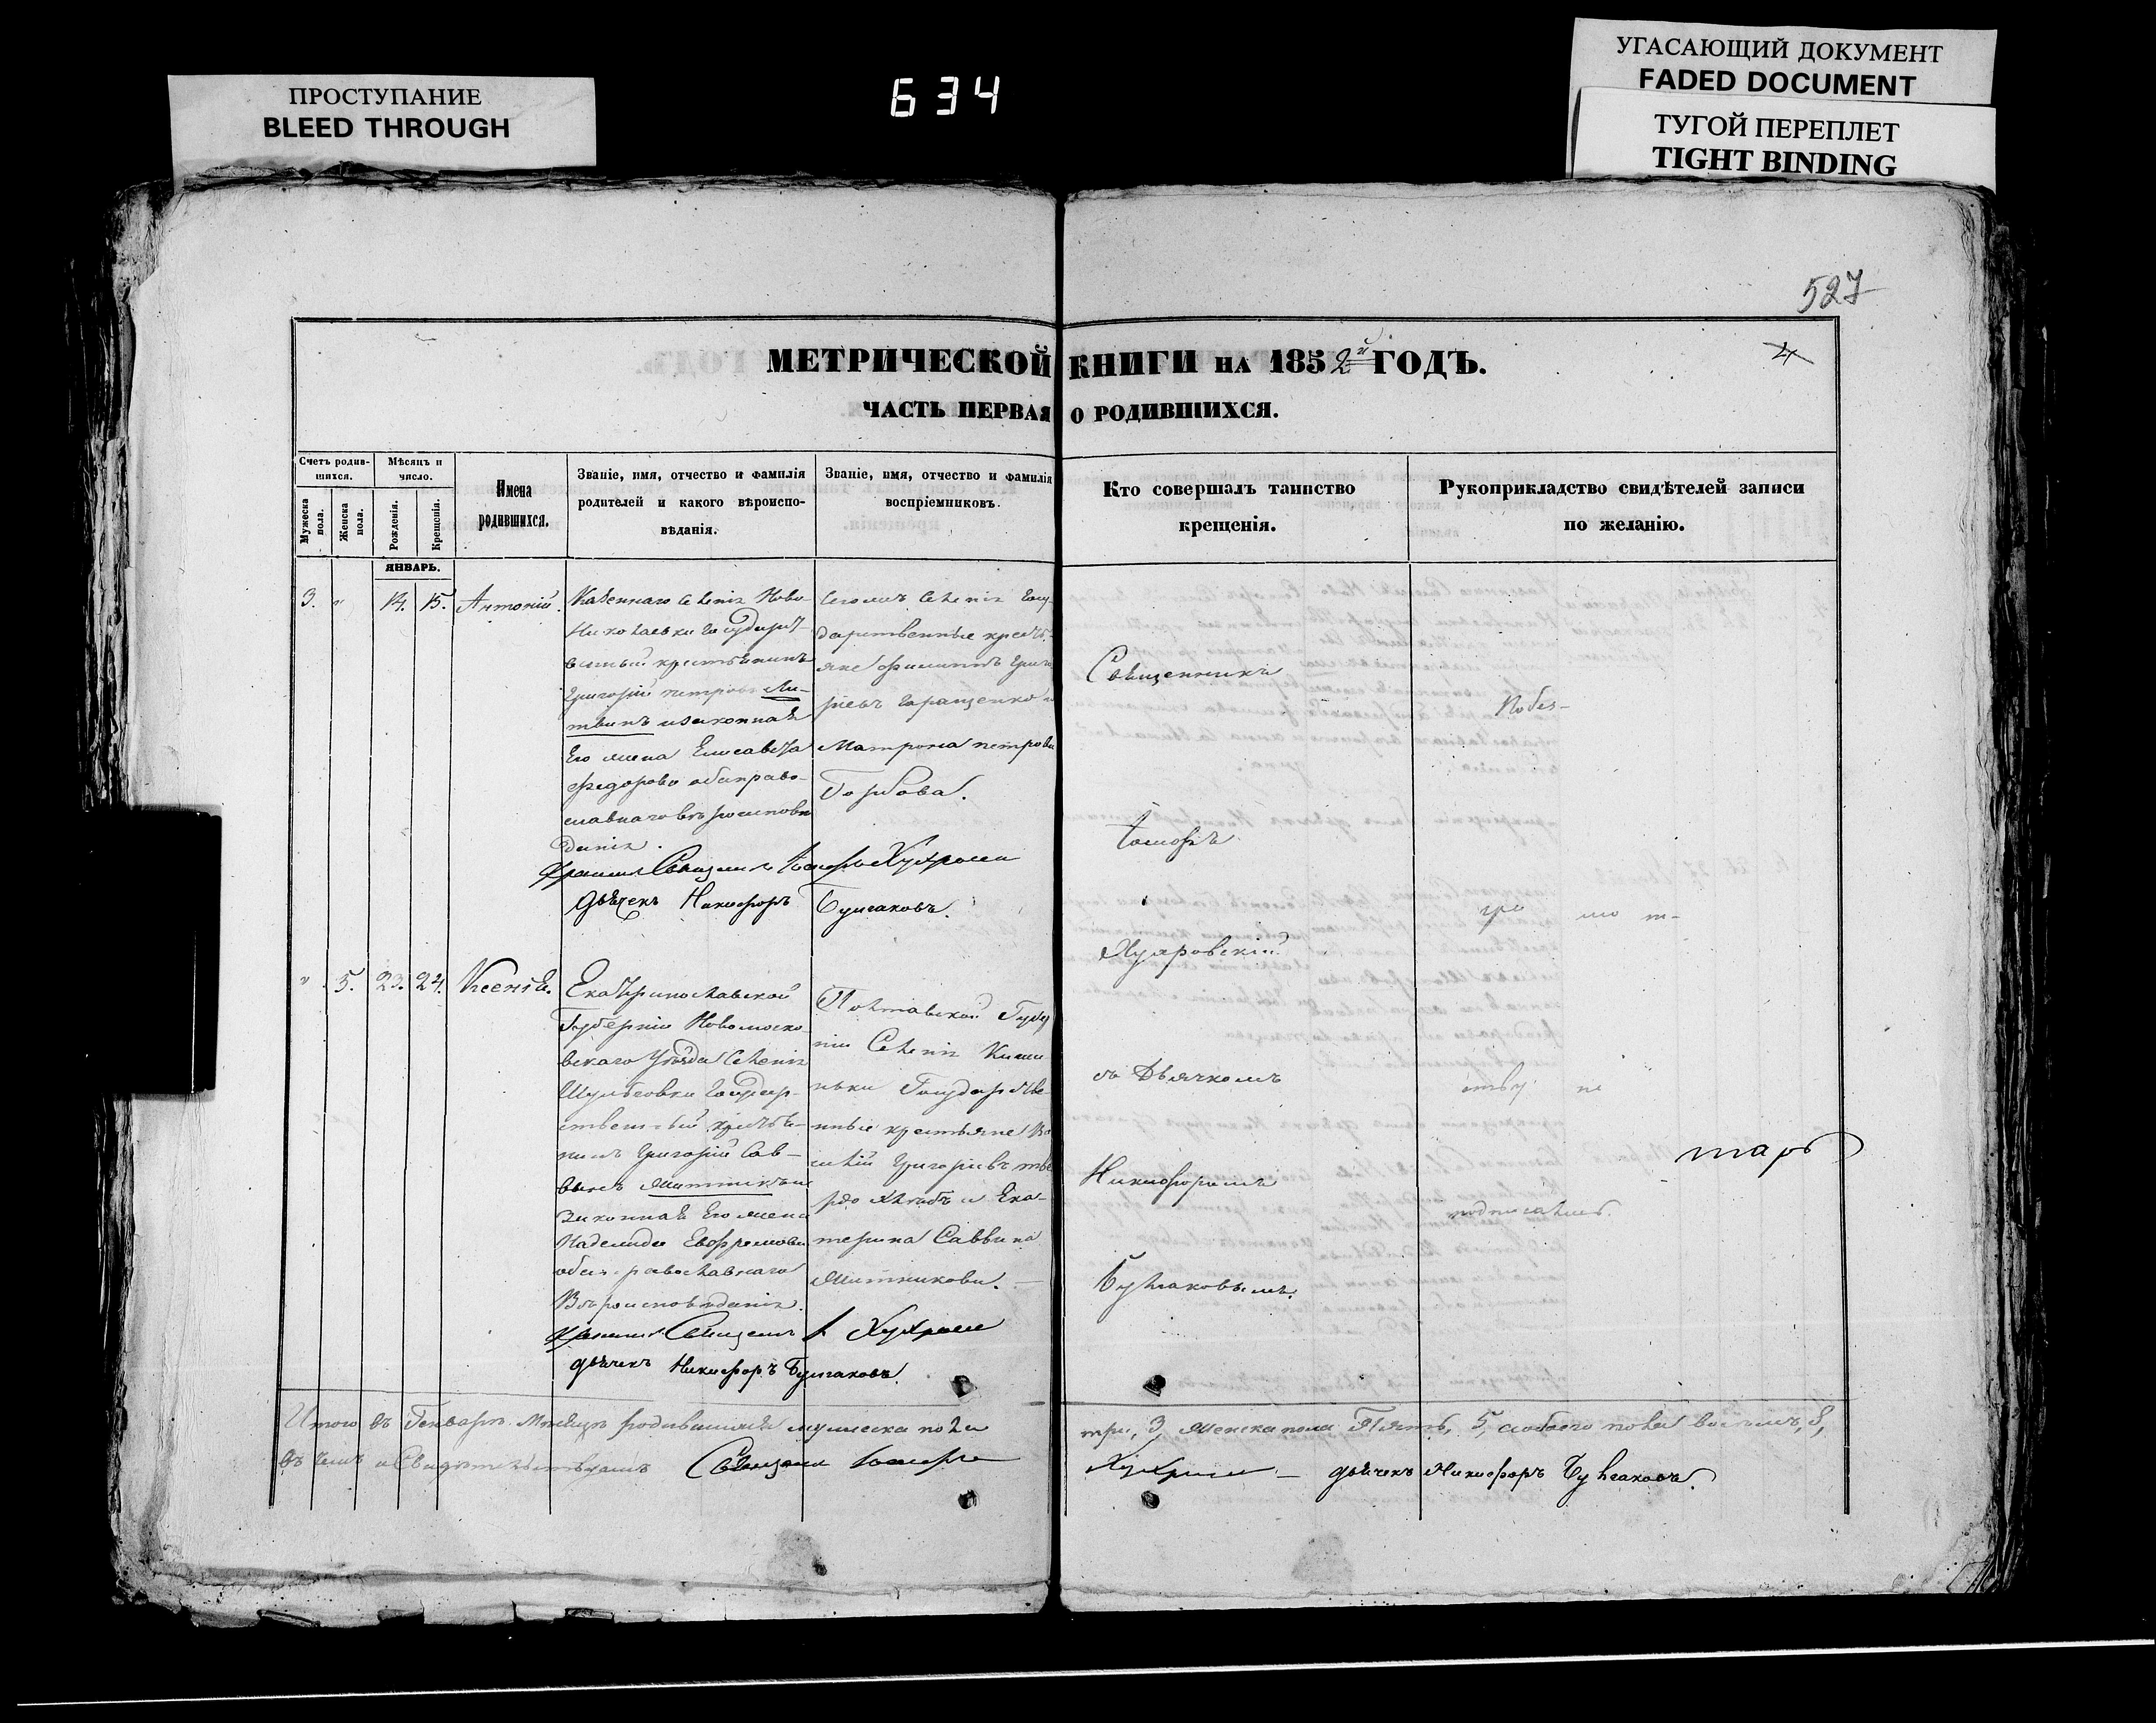 ПРОСТУПАНИЕ
BLEED THROUGH
634
УГАСАЮЩИЙ ДОКУМЕНТ
FADED DOCUMENT
ТУГОЙ ПЕРЕПЛЕТ
TIGHT BINDING
527
МЕТРИЧЕСКОЙ КНИГИ НА 1852й ГОДЪ.
4
ЧАСТЬ ПЕРВАЯ О РОДИВШИХСЯ.
Счетъ родив-
шихся.
Мужеска пола.
Женска пола.
Мѣсяцъ и
число.
Рожденія.
Крещенія.
Имена
родившихся.
Званіе, имя, отчество и фамилія
родителей и какого вѣроиспо-
вѣданія.
Званіе, имя, отчество и фамилія
воспріемниковъ.
Кто совершалъ таинство
крещенія.
Рукоприкладство свидѣтелей записи
по желанію.
ЯНВАРЬ.
3. " 14. 15. Антоній.
Казеннаго Селенія Ново-
Николаевки Государст-
венный крестьянинъ
Григорій Петровъ Ли-
твинъ и законная
Его жена Елисавета
Федорова оба право-
славнаго вѣроисповѣ
данія.
Сегожъ Селенія Госу-
дарственные крестья-
яне Филиппъ Григо
ріевъ Геращенко и
Матрона Петрова
Горбова.
Дьячекъ Никифоръ Булгаковъ.
" 5. 23. 24. Ксенія.
Екатеринославской
Губерніи Новомоско-
вскаго Уѣзда Селенія
Шульговки Государ-
ственный крестья-
нинъ Григорій Сав-
винъ Митникъ и
законная Его жена
Надежда Евфремова
оба православнаго
Вѣроисповѣданія.
Полтавской Губер
ніи Селенія Кише
ньки Государстве-
нные крестьяне Ва
силій Григоріевъ Тве
рдо хлѣбъ и Ека-
терина Саввина
Митникова.
Дьячекъ Никифоръ Булгаковъ.
Священникъ
съ Дьячкомъ
Никифоромъ
Булгаковымъ.
Итого въ Генварѣ Мѣсяцѣ родившихся мужеска пола
три, 3, женска пола Пять, 5, и обоего пола восемь, 8,
въ чемъ и Свидѣтельствуемъ Священникъ
Дьячекъ Никифоръ Булгаковъ.